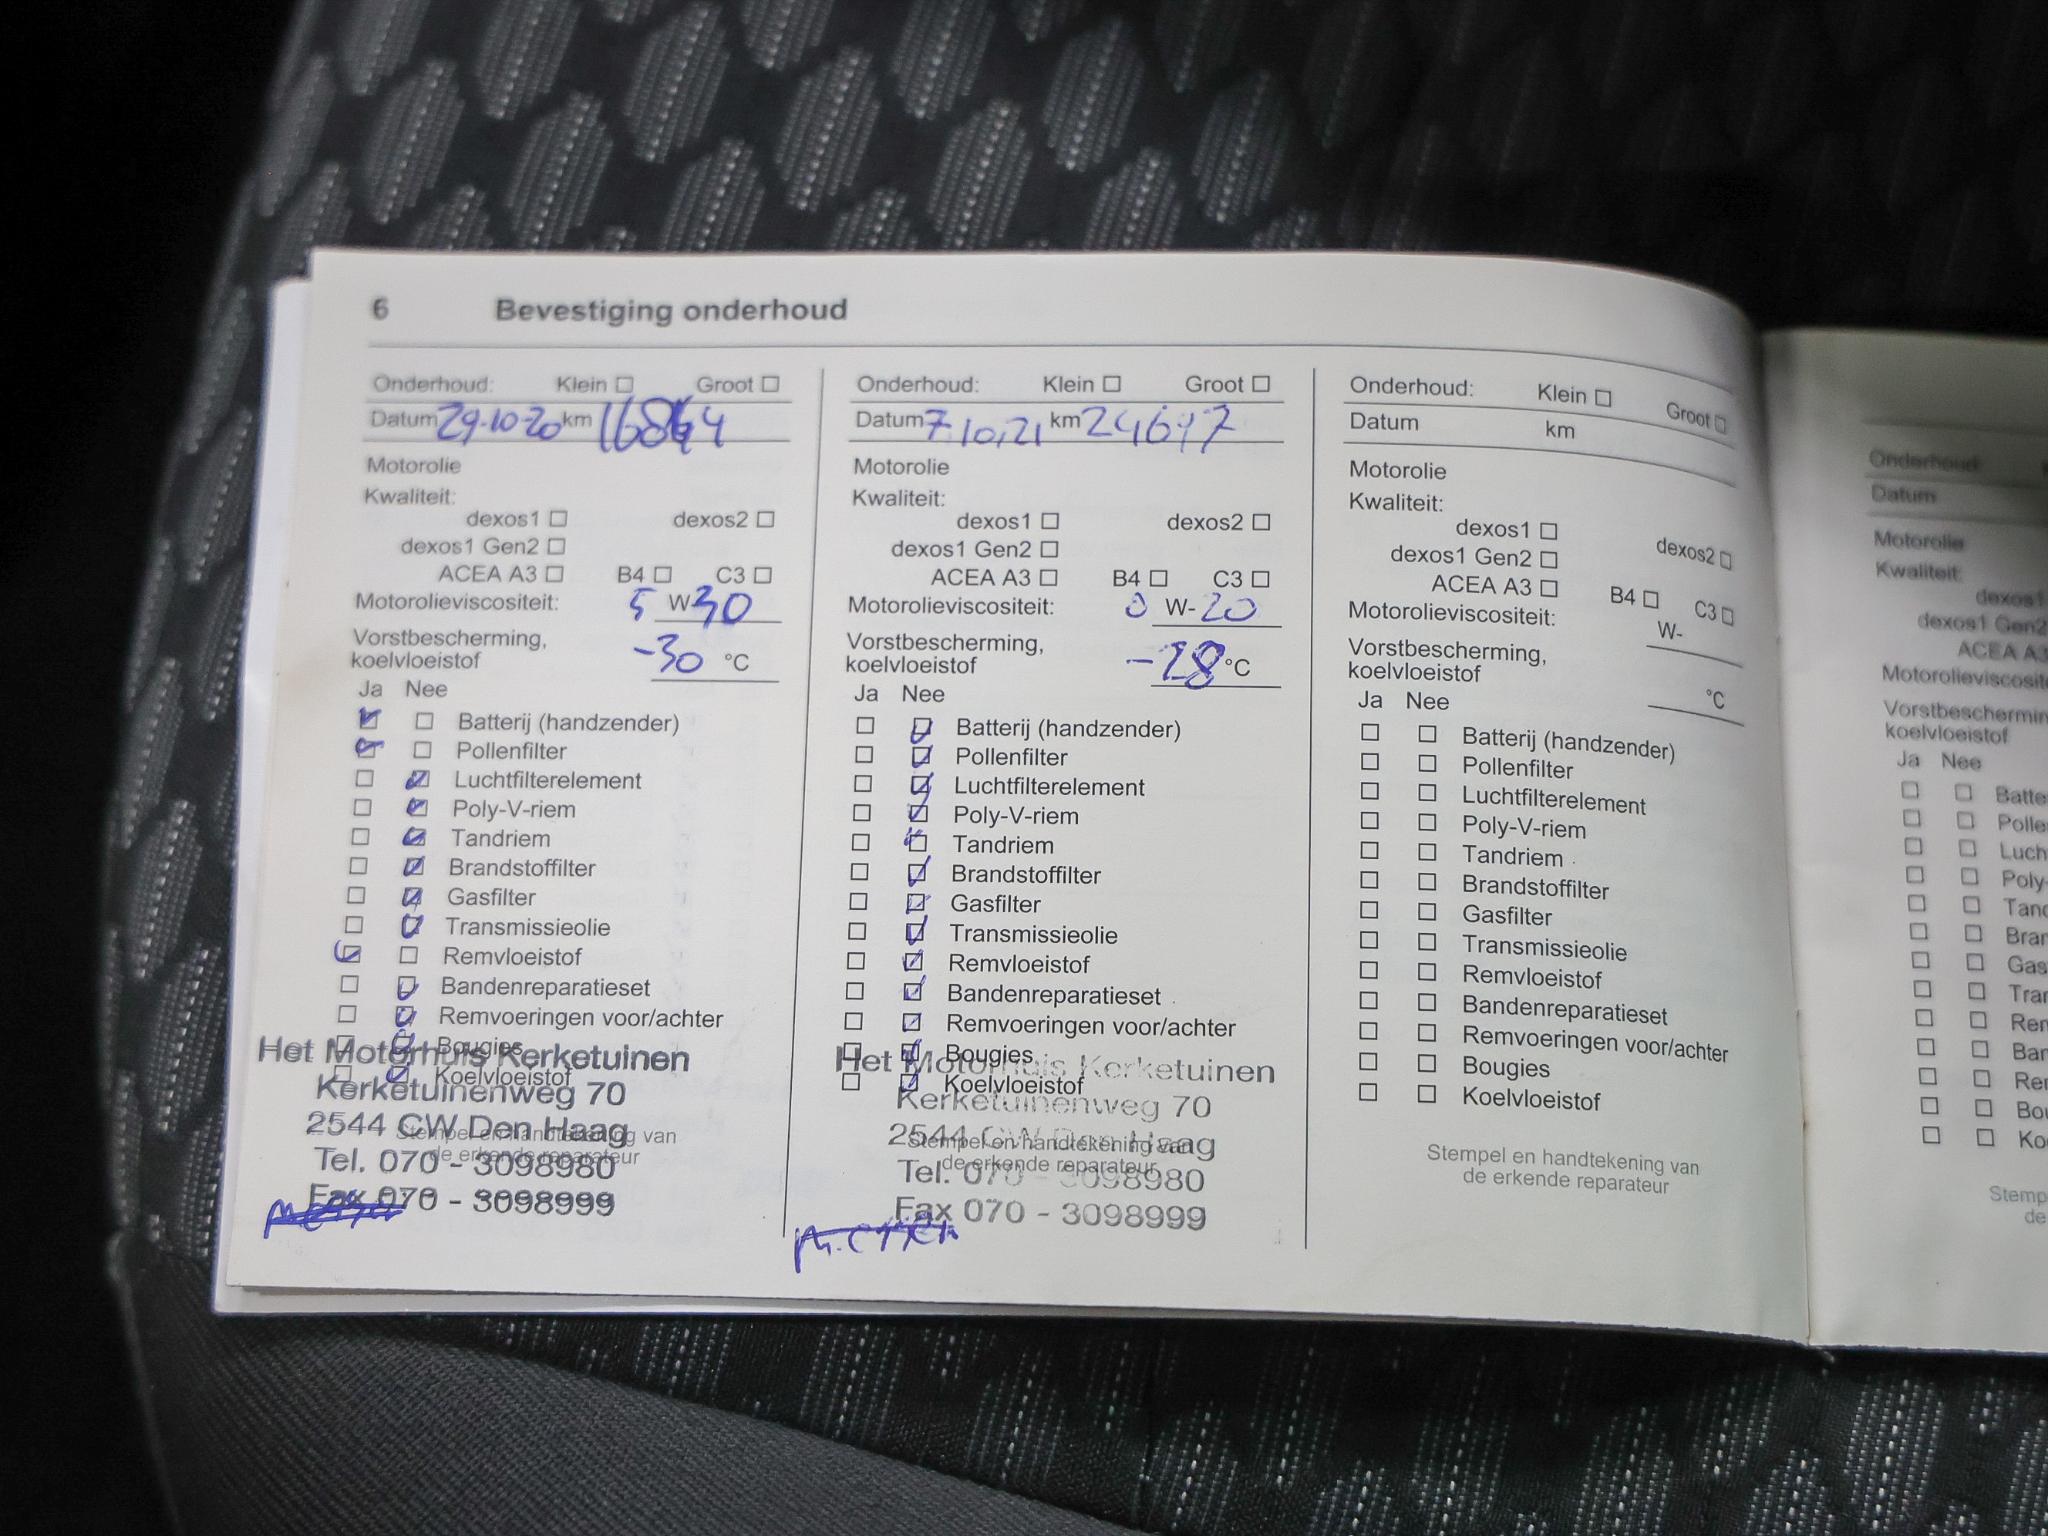 6 Bevestiging onderhoud
Onderhoud: Klein Groot
Datum 29-10-20 km
Motorolie
Kwaliteit:
dexos1 dexos2
dexos1 Gen2
ACEA A3 B4 C3
Motorolieviscositeit: 5 W 30
Vorstbescherming,
koelvloeistof -30 °C
Ja Nee
Batterij (handzender)
Pollenfilter
Luchtfilterelement
Poly-V-riem
Tandriem
Brandstoffilter
Gasfilter
Transmissieolie
Remvloeistof
Bandenreparatieset
Remvoeringen voor/achter
Bougies
Koelvloeistof
Het Motorhuis Kerketuinen
Kerketuinenweg 70
2544 CW Den Haag
Stempel en handtekening van
de erkende reparateur
Tel. 070 - 3098980
Fax 070 - 3098999
Onderhoud: Klein Groot
Datum 7 10,21 km 24697
Motorolie
Kwaliteit:
dexos1 dexos2
dexos1 Gen2
ACEA A3 B4 C3
Motorolieviscositeit: 0 W- 20
Vorstbescherming,
koelvloeistof -28 °C
Ja Nee
Batterij (handzender)
Pollenfilter
Luchtfilterelement
Poly-V-riem
Tandriem
Brandstoffilter
Gasfilter
Transmissieolie
Remvloeistof
Bandenreparatieset
Remvoeringen voor/achter
Bougies
Koelvloeistof
Het Motorhuis Kerketuinen
Kerketuinenweg 70
2544 CW Den Haag
Stempel en handtekening van
de erkende reparateur
Tel. 070 - 3098980
Fax 070 - 3098999
Onderhoud: Klein Groot
Datum km
Motorolie
Kwaliteit:
dexos1 dexos2
dexos1 Gen2
ACEA A3 B4 C3
Motorolieviscositeit: W-
Vorstbescherming,
koelvloeistof °C
Ja Nee
Batterij (handzender)
Pollenfilter
Luchtfilterelement
Poly-V-riem
Tandriem
Brandstoffilter
Gasfilter
Transmissieolie
Remvloeistof
Bandenreparatieset
Remvoeringen voor/achter
Bougies
Koelvloeistof
Stempel en handtekening van
de erkende reparateur
Onderhoud:
Datum
Motorolie
Kwaliteit:
dexos1
dexos1 Gen2
ACEA A3
Motorolieviscosite
Vorstbeschermin
koelvloeistof
Ja Nee
Batte
Polle
Luch
Poly-
Tand
Bran
Gas
Tra
Ren
Ban
Re
Bou
Ko
Stemp
de